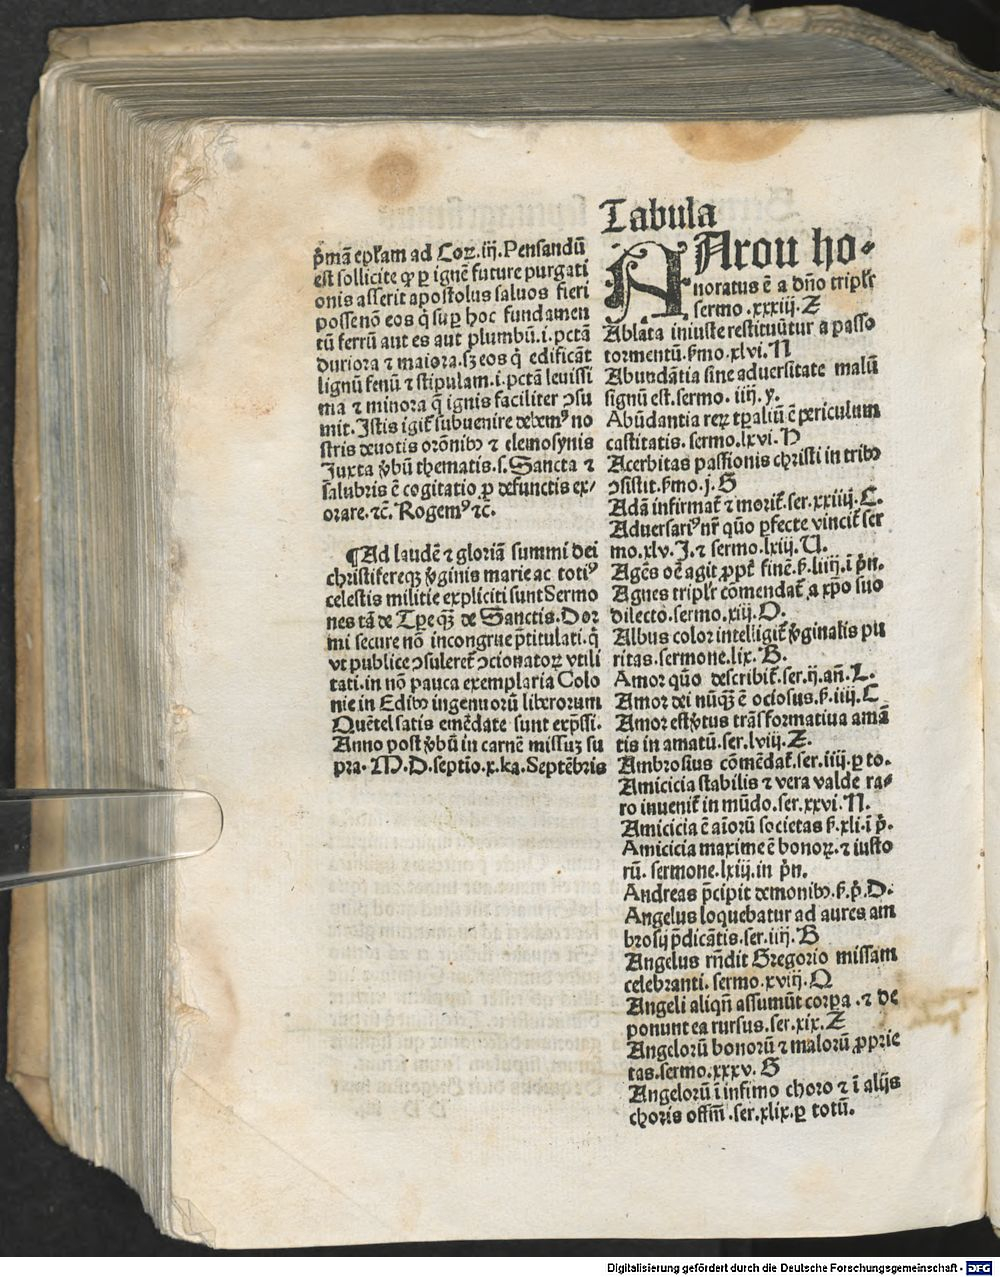 p̄mā ep̄lam ad Coꝛ.iij. Pensandū
est sollicite ꝙ ꝑ ignē future purgati
onis asserit apostolus saluos fieri
posse nō eos q̇ suꝑ hoc fundamen
tū ferrū aut es aut plumbū.i.pctā
duriora ⁊ maiora. sꝫ eos q̇ edificāt
lignū fenū ⁊ stipulam.i.pctā leuissi
ma ⁊ minora q̄ ignis faciliter ↄsu
mit. Istis igit̄ subuenire debemꝰ no
stris deuotis orōnibꝫ ⁊ elemosynis
Iuxta v̄bū thematis.s. Sancta ⁊
salubris ē cogitatio ꝓ defunctis ex/
orare.⁊c̄. Rogemꝰ ⁊c̄.
¶Ad laudē ⁊ gloriā summi dei
christifereqꝫ v̄ginis marie ac totiꝰ
celestis militie expliciti sunt Sermo
nes tā de Tꝑe qꝫ̄ de Sanctis. Dor
mi secure nō incongrue p̄titulati. q̇
vt publice ↄsuleret̄ ↄcionatoꝝ vtili
tati. in nō pauca exemplaria Colo
nie in Edibꝫ ingenuorū liberorum
Quētel satis emēdate sunt exp̄ssi.
Anno post v̄bū in carnē missuꝫ su
pra. M.D.septīo.x.ka. Septēbris
Tabula
AArou ho-
noratus ē a dn̄o tripl̄r
sermo .xxxiij. Z
Ablata iniuste restituūtur a passo
tormentū. s̄mo.xlvi. N
Abundātia sine aduersitate malū
signū est. sermo. iiij. y.
Abūdantia reꝝ tꝑaliū ē periculum
castitatis. sermo.lxvi. P
Acerbitas passionis christi in tribꝫ
ↄsistit. s̄mo.j. G
Adā infirmat̄ ⁊ morit̄. ser.xxiiij. C.
Aduersariꝰ nr̄ quō ꝑfecte vincit̄ ser
mo.xlv. J. ⁊ sermo.lxiij. U.
Agēs oē agit ꝓpt̄ finē. s̄.liiij. ī p̄n.
Agnes tripl̄r cōmendat̄ a xp̄o suo
dilecto. sermo.xiij. O.
Albus color intelligit̄ v̄ginalis pu
ritas. sermone.lix. B.
Amor quō describit̄. ser.ij. añ. L.
Amor dei nūqꝫ̄ ē ociosus. s̄.iiij. C
Amor est v̄tus trāsformatiua amā
tis in amatū. ser.lviij. Z.
Ambrosius cōmēdat̄. ser.iiij. ꝑ to.
Amicicia stabilis ⁊ vera valde ra-
ro inuenit̄ in mūdo. ser.xxvi. N.
Amicicia ē aīorū societas s̄.xli. i p̄.
Amicicia maxime ē bonoꝝ. ⁊ iusto
rū. sermone.lxiij. in p̄n.
Andreas p̄cipit demonibꝫ. s̄.p̄. D.
Angelus loquebatur ad aures am
brosij p̄dicātis. ser.iiij. B
Angelus rn̄dit Gregorio missam
celebranti. sermo.xviij. Q
Angeli aliqn̄ assumūt corꝑa. ⁊ de
ponunt ea rursus. ser.xix. Z
Angelorū bonorū ⁊ malorū ꝓprie
tas. sermo.xxxv. G
Angelorū ī infimo choro ⁊ ī alijs
choris offīm .ser.xlix. ꝑ totū.
Digitalisierung gefördert durch die Deutsche Forschungsgemeinschaft - DFG